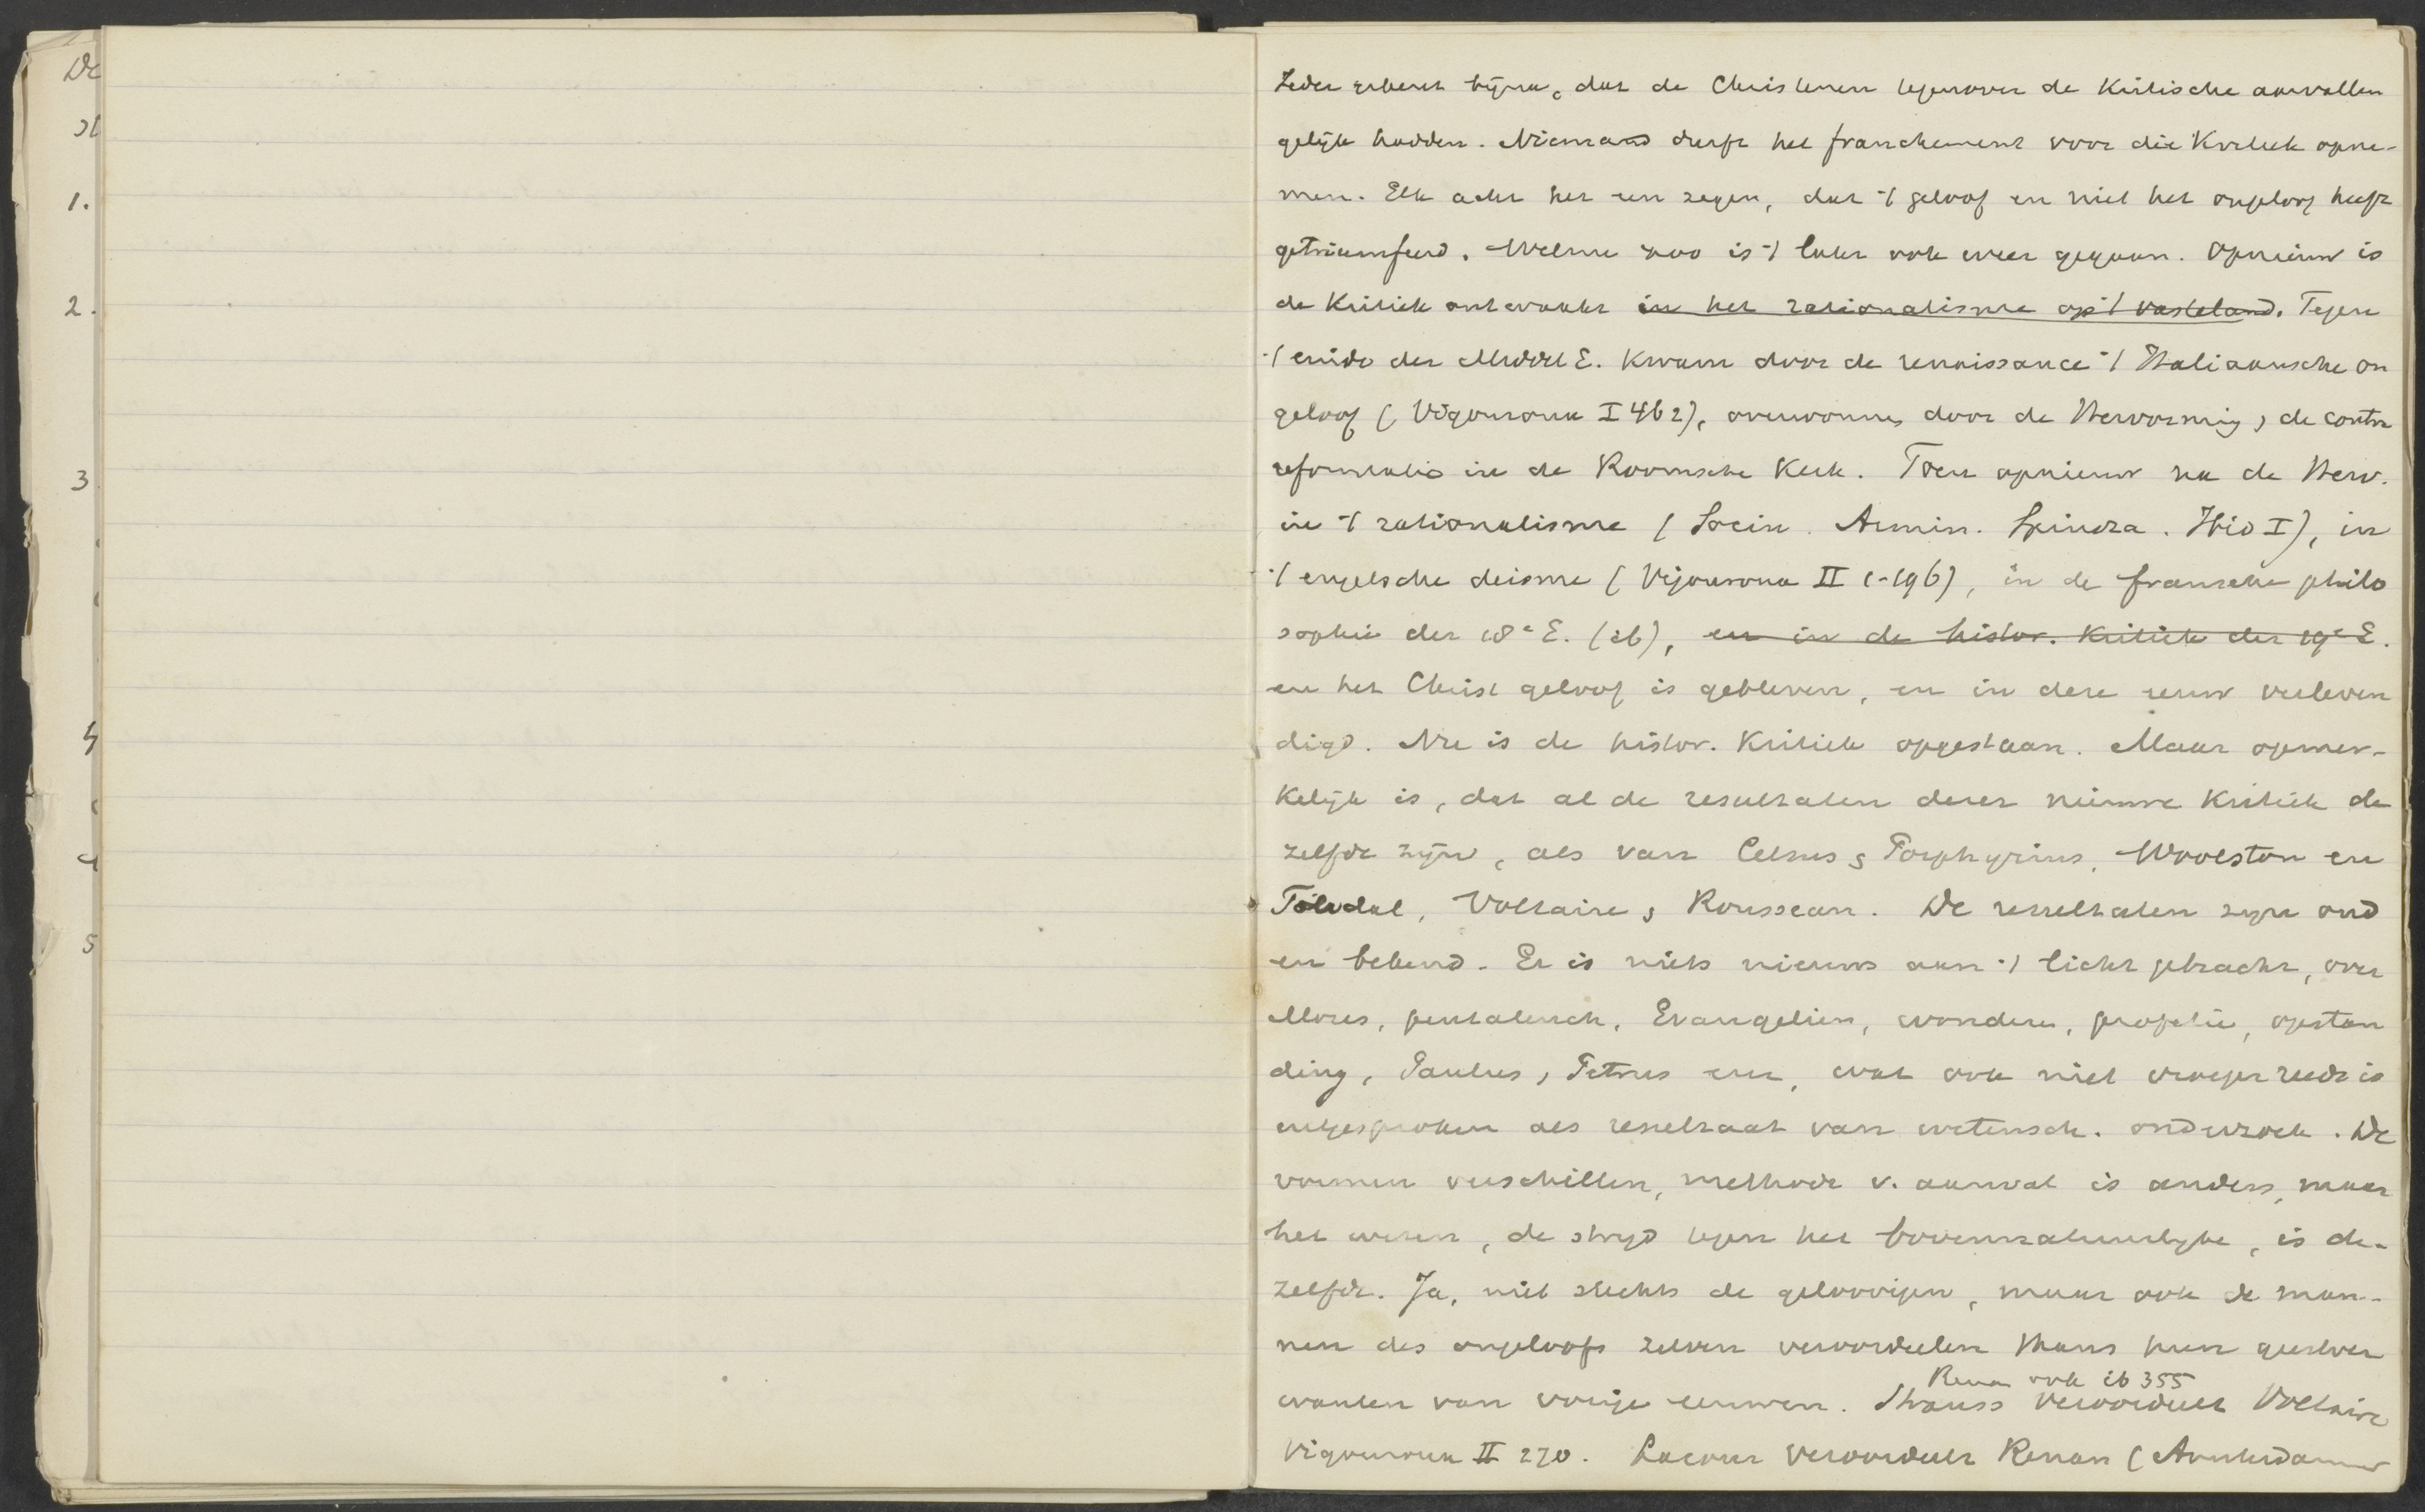 De
1.
2.
3
4
5
Ieder erkent bijna, dat de Christenen tegenover de Kritische aanvallen
gelijk hadden. Niemand durft het franchement voor die Kritiek opne-
men. Elk acht het een zegen, dat 't geloof en niet het ongeloof heeft
getriumfeerd. Welnu zoo is 't later ook weer gegaan. Opnieuw is
de Kritiek ontwaakt in het rationalisme op 't vasteland. Tegen
't einde der Middel E. kwam door de renaissance 't Italiaansche on
geloof (Vigouroux I 462), overwonnen door de Hervorming, de contra
reformatie in de Roomsche Kerk. Toen opnieuw na de Herv.
in 't rationalisme (Socin. Armin. Spinoza. Ibid I), in
't engelsche deisme (Vigouroux II 1-196), in de fransche philo
sophie der 18e E. (ib), en in de histor. Kritiek der 19e E.
en het Christ geloof is gebleven, en in deze eeuw verleven
digd. Nu is de histor. Kritiek opgestaan. Maar opmer-
kelijk is, dat al de resultaten dezer nieuwe Kritiek de
zelfde zijn, als van Celsus, Porphyrius, Woolston en
Tindal, Voltaire, Rousseau. De resultaten zijn oud
en bekend. Er is niets nieuws aan 't licht gebracht, over
Mozes, pentateuch, Evangelien, wonderen, profetie, opstan
ding, Paulus, Petrus enz, wat ook niet vroeger reeds is
uitgesproken als resultaat van wetensch. onderzoek. De
vormen verschillen, methode v. aanval is anders, maar
het wezen, de strijd tegen het bovennatuurlijke, is de-
zelfde. Ja, niet slechts de geloovigen, maar ook de man-
nen des ongeloofs zelven veroordeelen thans hun geestver
wanten van vorige eeuwen. Strauss veroordeelt Voltaire
Renan ook ib 355
Vigouroux II 270. Lacour veroordeelt Renan (Amsterdammer